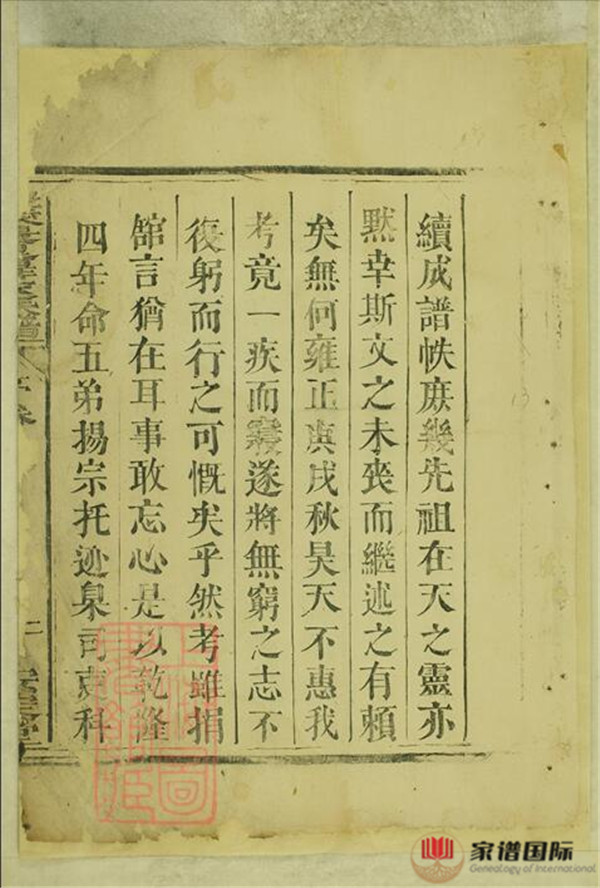 續成譜帙庶幾先祖在天之靈亦
默幸斯文之未喪而繼述之有賴
矣無何雍正庚戌秋昊天不惠我
考竟一疾而竟遂將無窮之志不
復躬而行之可慨矣乎然考雖捐
舘言猶在耳事敢忘心是以乾隆
四年命五弟揚宗托迹臬司東科
二
家谱国际
Genealogy of International